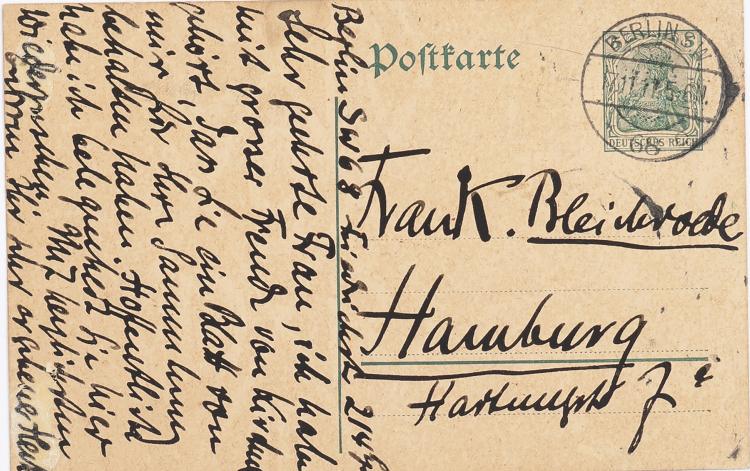 Postkarte
BERLIN S.W.
11.11.15.
68
DEUTSCHES REICH
Frau K. Bleichrode
Hamburg
Hartungstr 7
Berlin SW 68
Sehr geehrte Frau, ich habe
mit großer Freude von
gehört, dass Sie ein Blatt von
mir für Ihre Sammlung
behalten haben. Hoffentlich
habe ich Gelegenheit Sie hier
wiederzusehen. Mit herzlichen
Ihr sehr ergebener